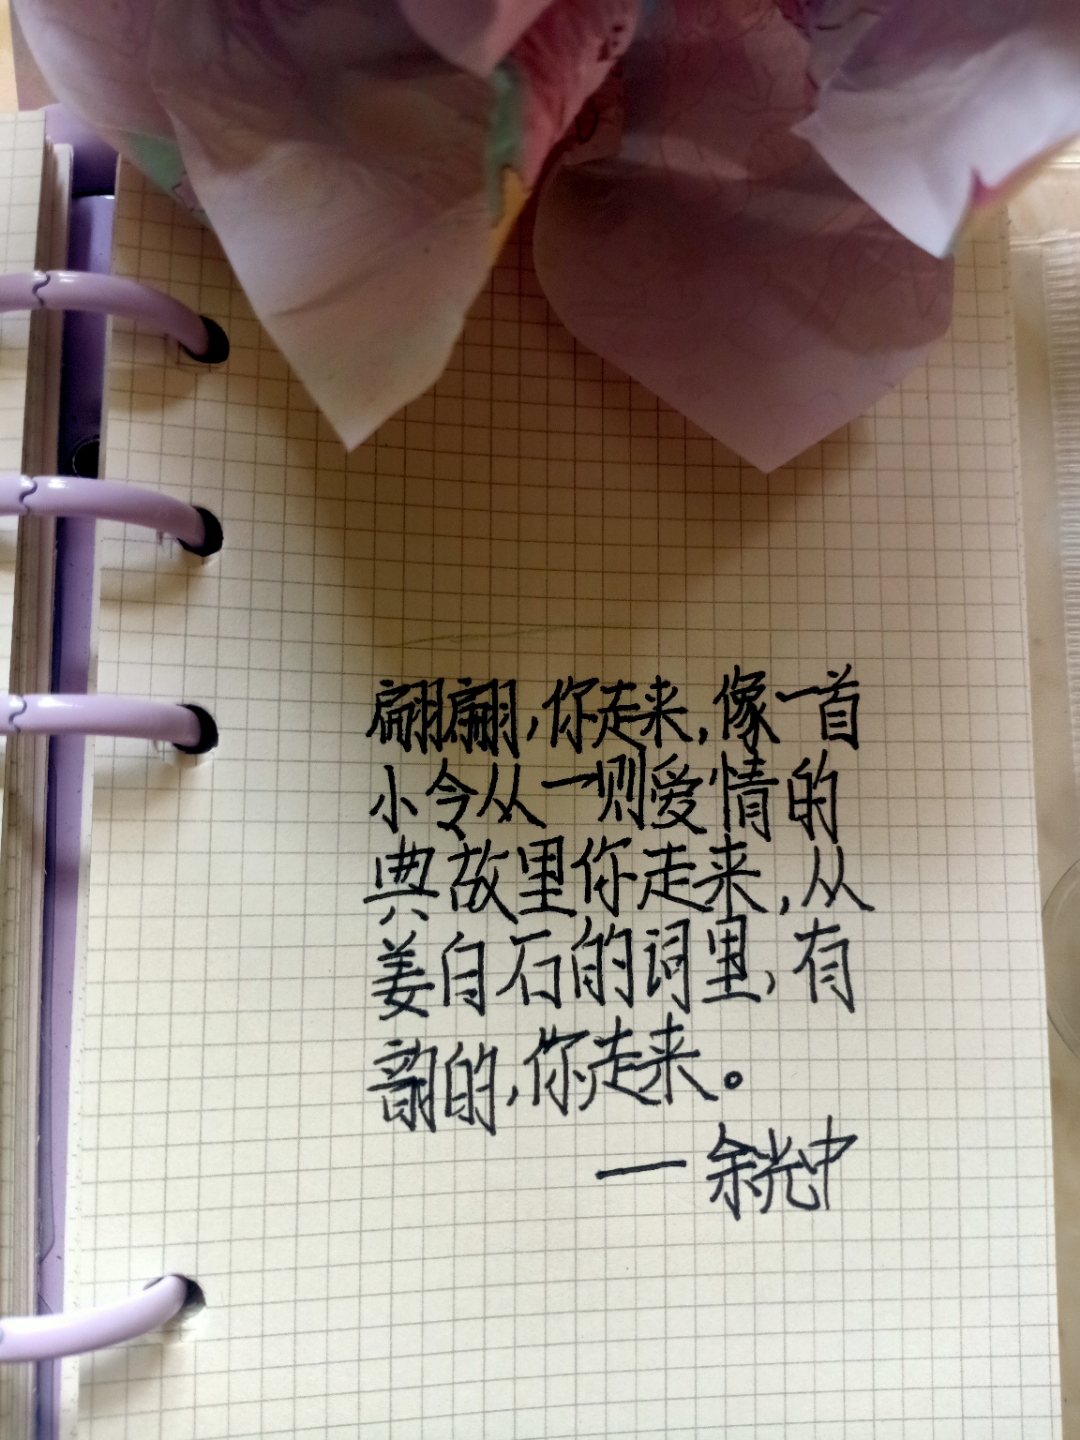 翩翩,你走来,像一首
小令从一则爱情的
典故里你走来,从
姜白石的词里,有
韵的,你走来。
— 余光中